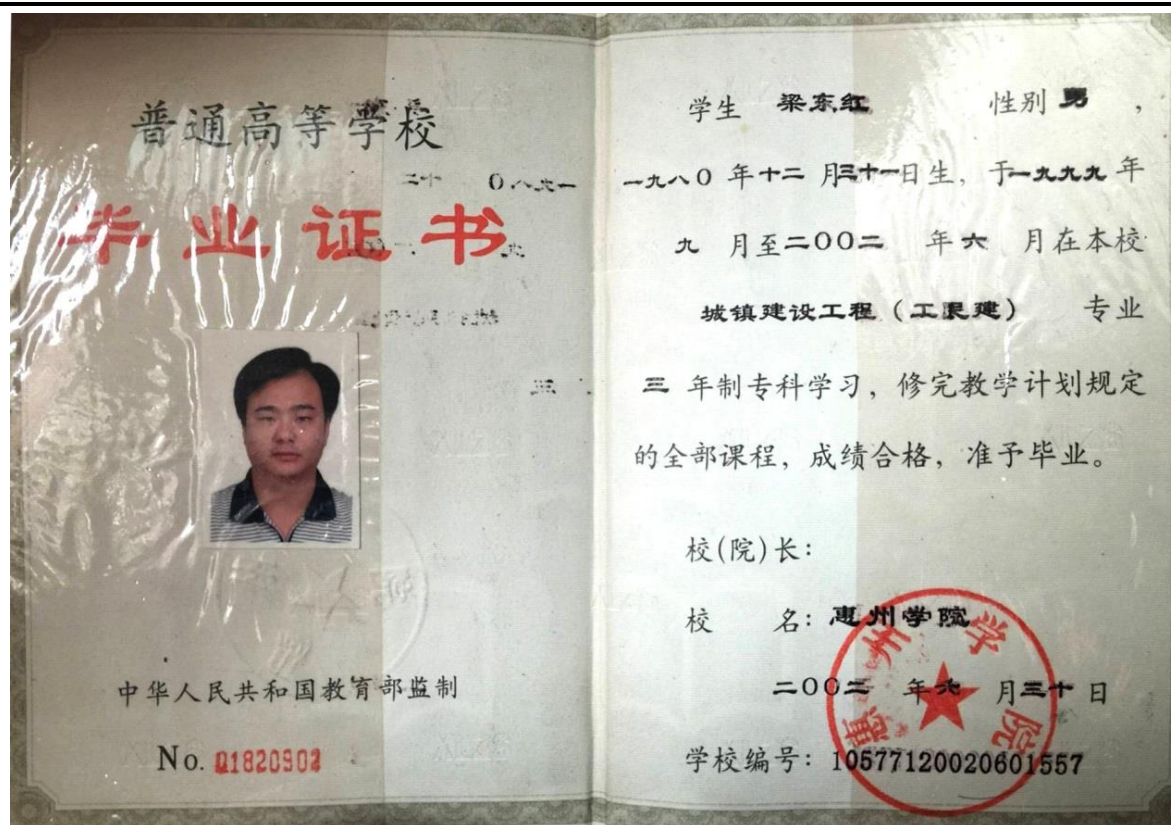 普通高等学校
毕业证书
中华人民共和国教育部监制
No. 01820902
学生 梁东红 性别 男，
一九八0 年十二 月三十一日生，于一九九九 年
九 月至二00二 年 六 月在本校
城镇建设工程（工民建） 专业
三 年制专科学习，修完教学计划规定
的全部课程，成绩合格，准予毕业。
校(院)长：
校 名：惠州学院
二00二 年六 月三十 日
学校编号：10577120020601557
惠州学院